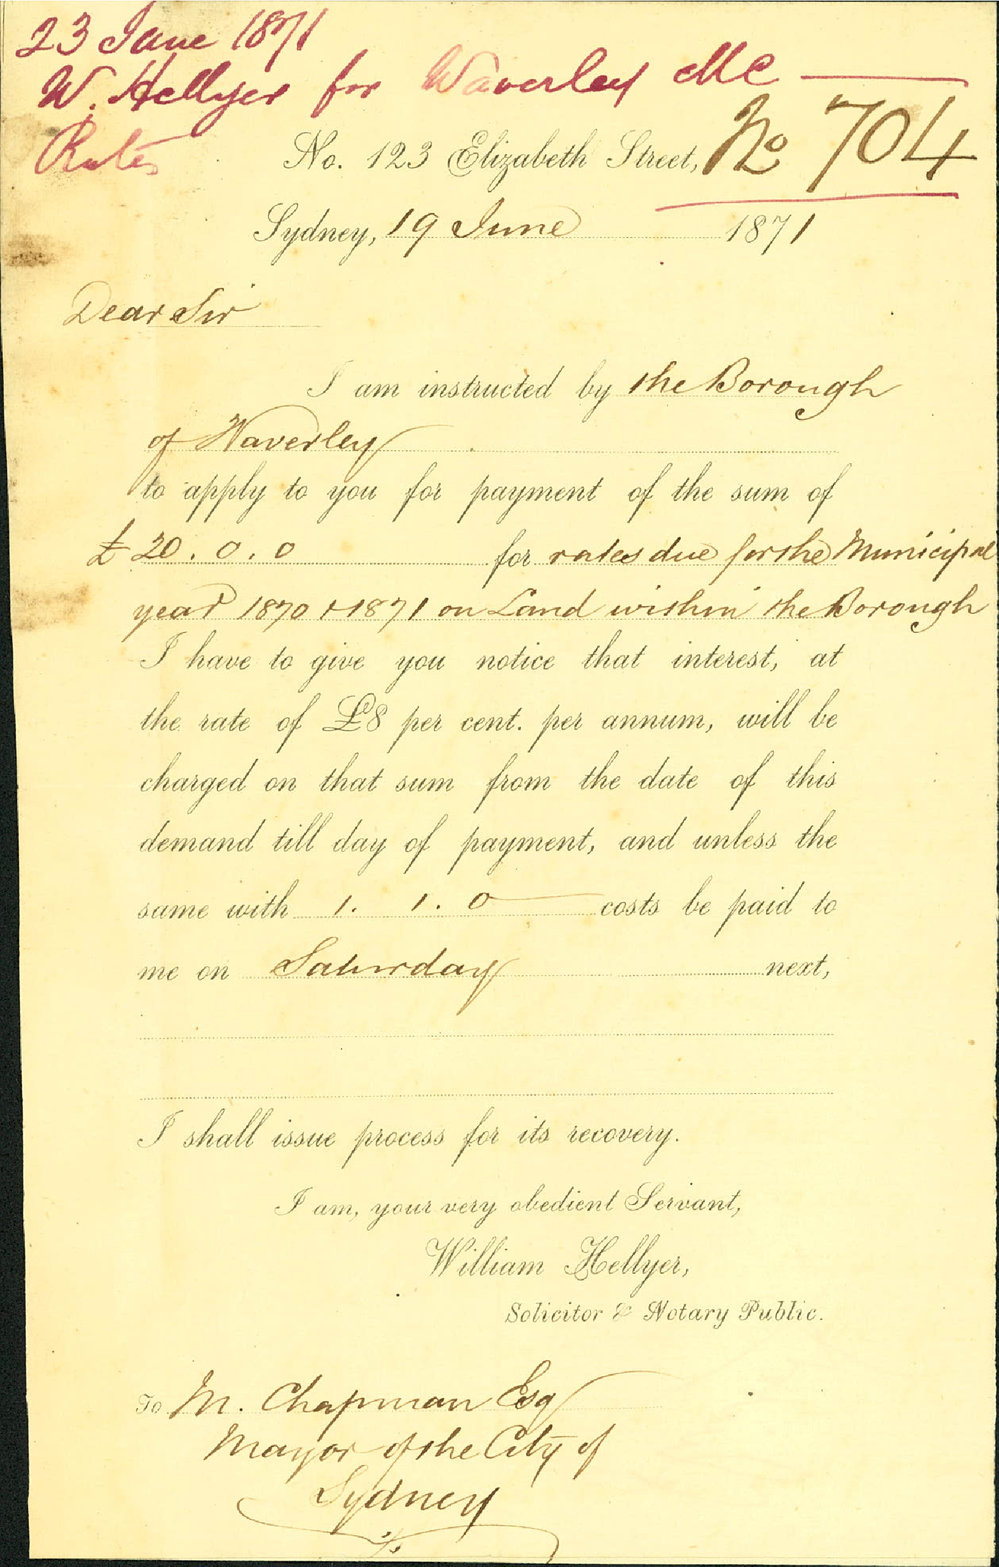 23 June 1871
W. Hellyer for Waverley MC
Rates
No 704
No. 123 Elizabeth Street,
Sydney, 19 June 1871
Dear Sir
I am instructed by the Borough
of Waverley
to apply to you for payment of the sum of
£ 20 . 0 . 0 for rates due for the Municipal
year 1870 + 1871 on Land within the Borough
I have to give you notice that interest, at
the rate of £8 per cent. per annum, will be
charged on that sum from the date of this
demand till day of payment, and unless the
same with 1. 1. 0 costs be paid to
me on Saturday next,
I shall issue process for its recovery.
I am, your very obedient Servant,
William Hellyer,
Solicitor & Notary Public.
To M. Chapman Esq
Mayor of the City of
Sydney